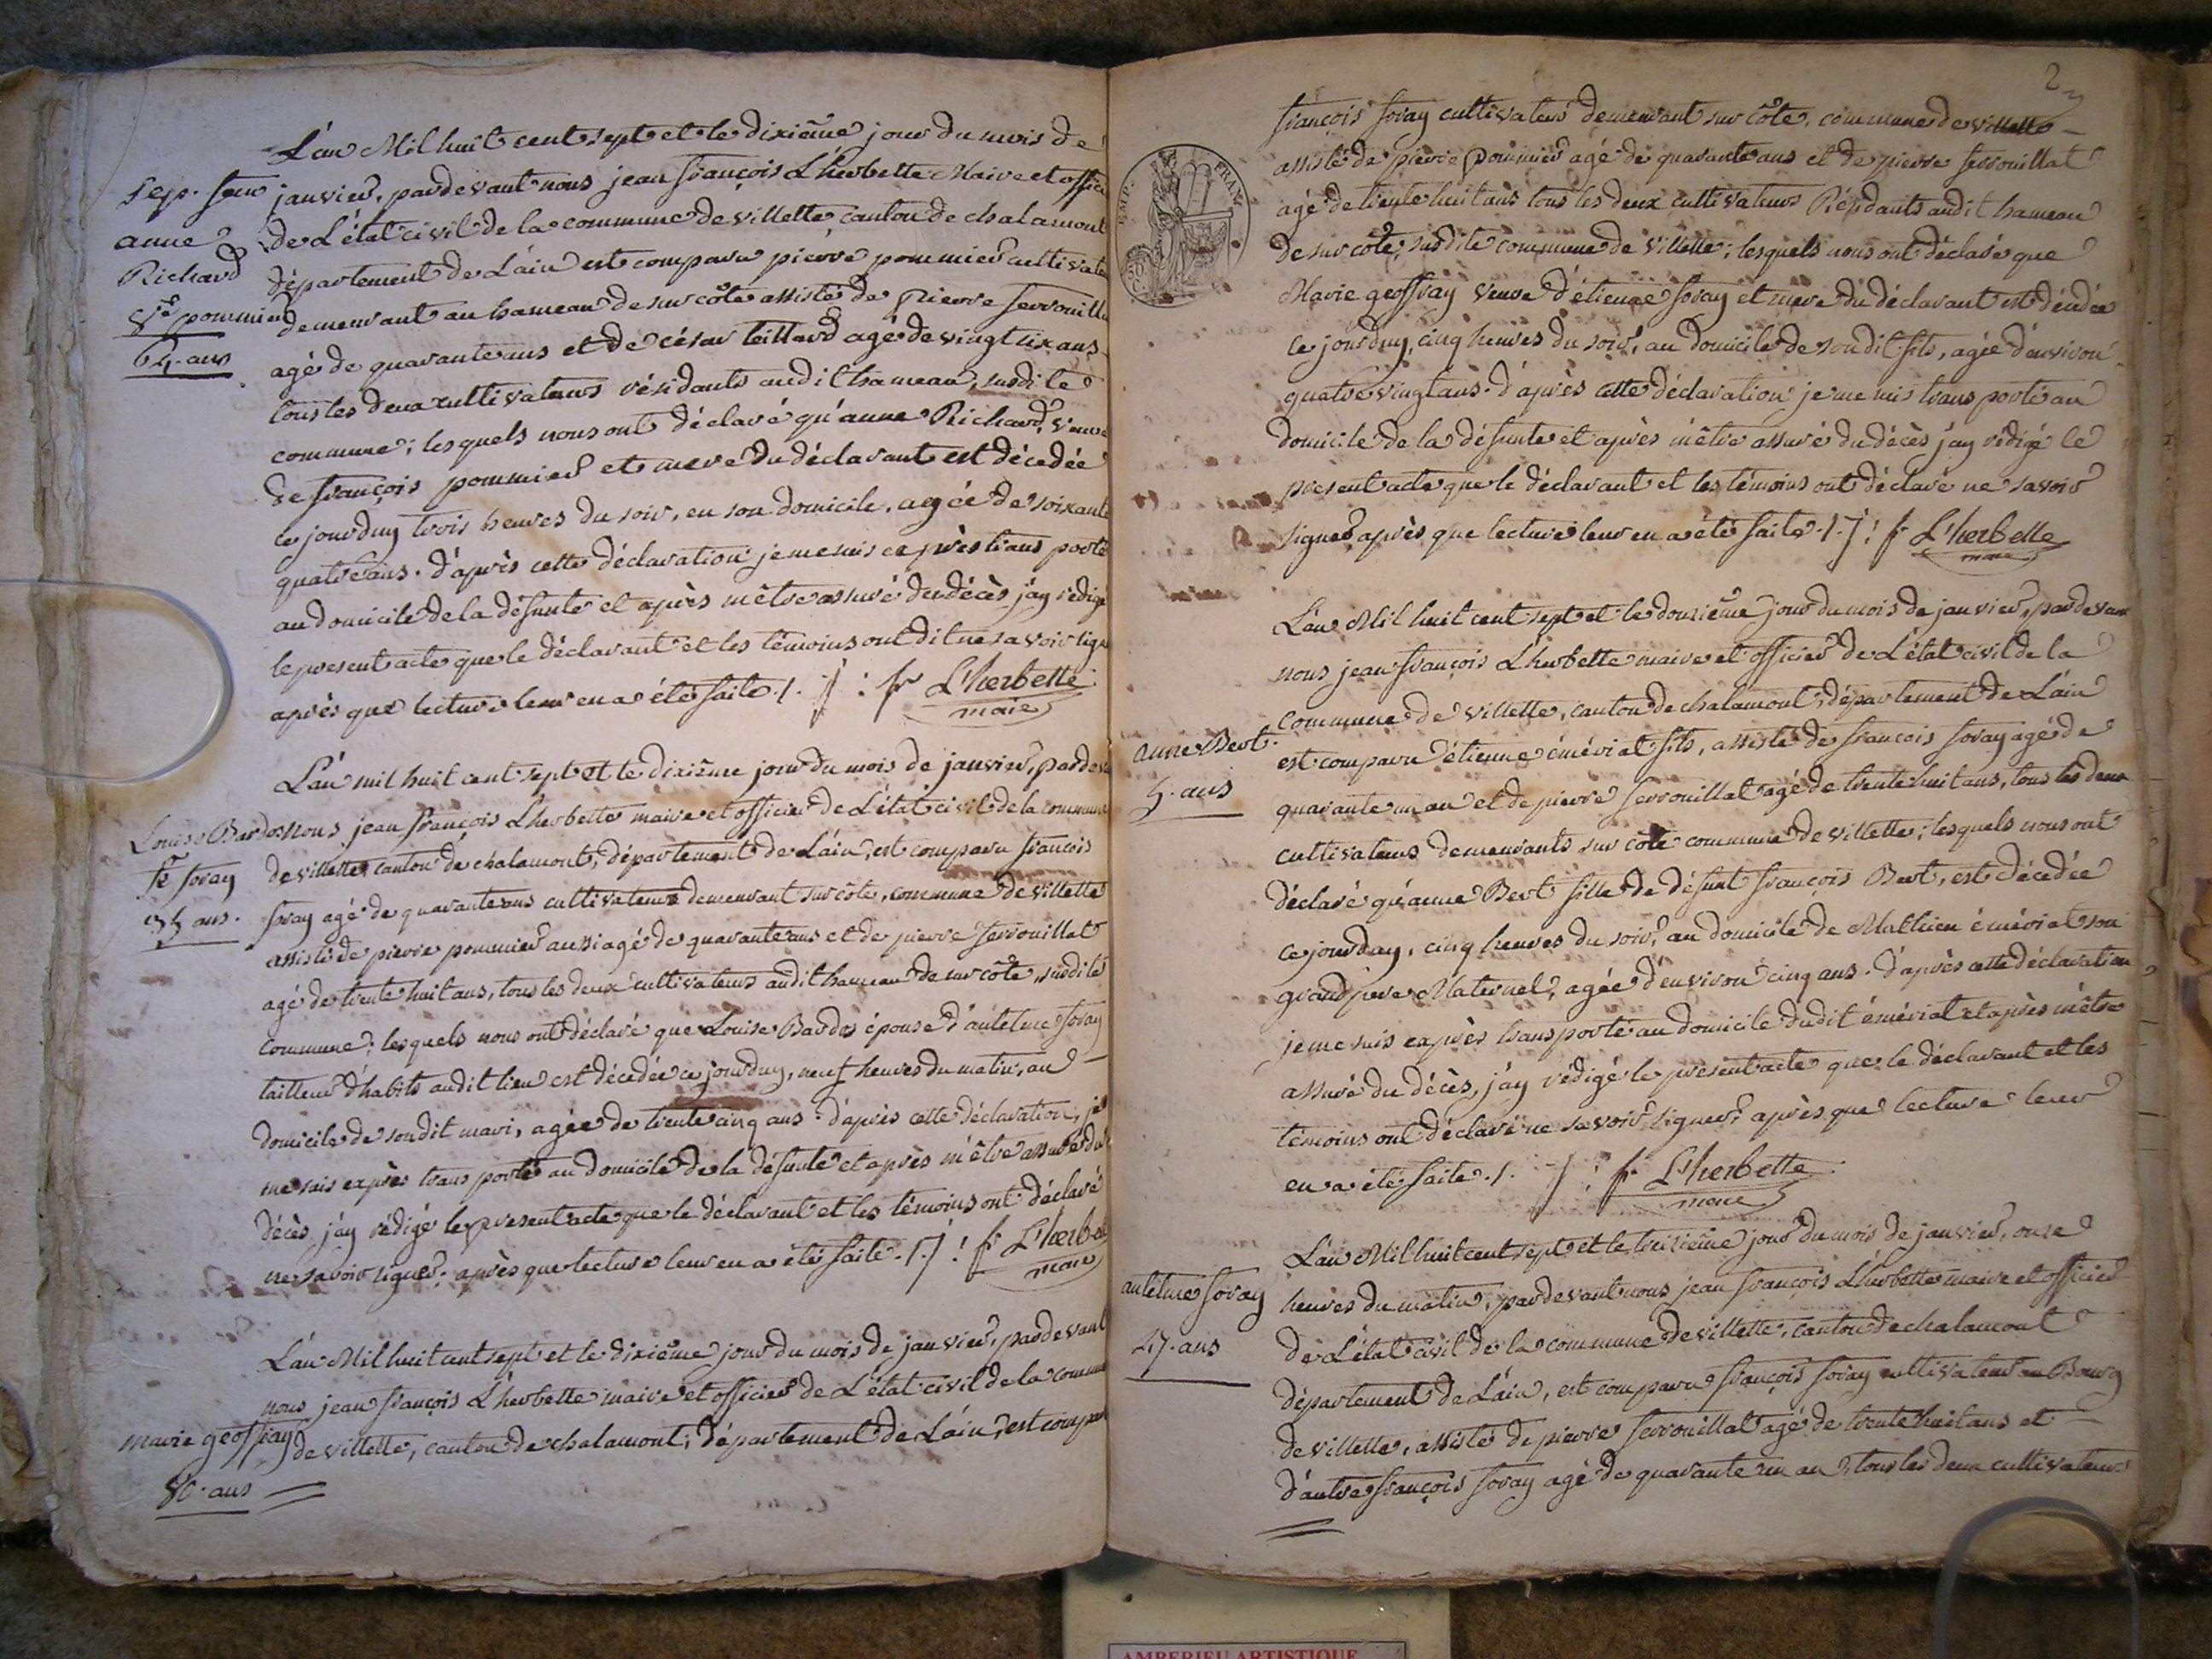 L'an Mil huit cent sept et le dixième jour du mois de
janvier, pardevant nous jean françois L'herbette Maire et offici
de L'état civil de la commune de villette, canton de chalamont
département de L'ain est comparu pierre pommier cultivate
demeurant au hameau de sur côte assisté de pierre ferrouilla
agé de quarante ans et de césar teillard agé de vingt six ans
tous les deux cultivateurs résidants audit hameau, susdite
commune; lesquels nous ont déclaré qu'anne Richard, veuve
de françois pommier et mere du déclarant est décedée
ce jourduy trois heures du soir, en son domicile, agée de soixante
quatre ans. d'après cette déclaration je me suis exprès transporté
au domicile de la défunte et après m'être assuré du décès j'ay rédigé
le present acte que le déclarant et les témoins ont dit ne savoir signe
après que lecture leur en a été faite ./. J: fr L'herbette
maire
anne
Richard
ve pommier
64. ans
L'an mil huit cent sept et le dixième jour du mois de janvier, pardeva
nous jean françois L'herbette maire et officier de L'état civil de la commune
de villette canton de chalamont, département de L'ain, est comparu francois
foray agé de quarante ans cultivateur demeurant sur côte, commune de villette
assisté de pierre pommier aussi agé de quarante ans et de pierre ferrouillat
agé de trente huit ans, tous les deux cultivateurs audit hameau de sur côte, susdite
commune; lesquels nous ont déclaré que Louise Bardos épouse d'antelme foray
tailleur d'habits audit lieu est décedée ce jourduy, neuf heures du matin, au
domicile de son dit mari, agée de trente cinq ans. d'après cette déclaration, je
me suis exprès transporté au domicile de la défunte et après m'être assuré du
décès j'ay rédigé le present acte que le déclarant et les témoins ont déclaré
ne savoir signer; après que lecture leur en a été faite ./. J: fr L'herbe
maire
Louise Bardos
fe foray
35 ans.
L'an Mil huit cent sept et le dixième jour du mois de janvier, pardevant
nous jean françois L'herbette maire et officier de L'état civil de la commun
de villette, canton de chalamont, département de L'ain, est compar
marie geoffray
80. ans
2
EMP. FRAN.
françois foray cultivateur demeurant sur côte, commune de villette
assisté de pierre pommier agé de quarante ans et de pierre ferrouillat
agé de trente huit ans tous les deux cultivateurs Résidants audit hameau
de sur côte, susdite commune de villette; lesquels nous ont déclaré que
Marie geoffray veuve d'étienne foray et mere du déclarant est décedée
ce jourduy, cinq heures du soir, au domicile de son dit fils, agée d'environ
quatre vingt ans. d'après cette déclaration je me suis transporté au
domicile de la défunte et après m'être assuré du décès j'ay rédigé le
present acte que le déclarant et les témoins ont déclaré ne savoir
signer après que lecture leur en a été faite ./. J: fr L'herbette
maire
L'an Mil huit cent sept et le douzième jour du mois de janvier, pardevan
nous jean françois L'herbette maire et officier de L'état civil de la
commune de villette, canton de chalamont, département de L'ain
est comparu étienne émériat fils, assisté de francois foray agé de
quarante un an et de pierre ferrouillat agé de trente huit ans, tous les deux
cultivateurs demeurants sur côte commune de villette; lesquels nous ont
déclaré qu'anne Bert fille de défunt françois Bert, est décedée
ce jourduy, cinq heures du soir, au domicile de Mathieu émériat son
grand pere Maternel, agée d'environ cinq ans. d'après cette déclaration
je me suis exprès transporté au domicile dudit émériat et après m'être
assuré du décès, j'ay rédigé le présent acte que le déclarant et les
témoins ont déclaré ne savoir signer, après que lecture leur
en a été faite ./. J: fr L'herbette
maire
anne Bert.
5. ans
L'an Mil huit cent sept et le treizième jour du mois de janvier, onze
heures du matin, pardevant nous jean françois L'herbette maire et officier
de L'état civil de la commune de villette, canton de chalamont
département de L'ain, est comparu françois foray cultivateur au Bourg
de villette, assisté de pierre ferrouillat agé de trente huit ans et
d'autre françois foray agé de quarante un an, tous les deux cultivateurs
antelme foray
47. ans
AMBERIEU ARTISTIQUE